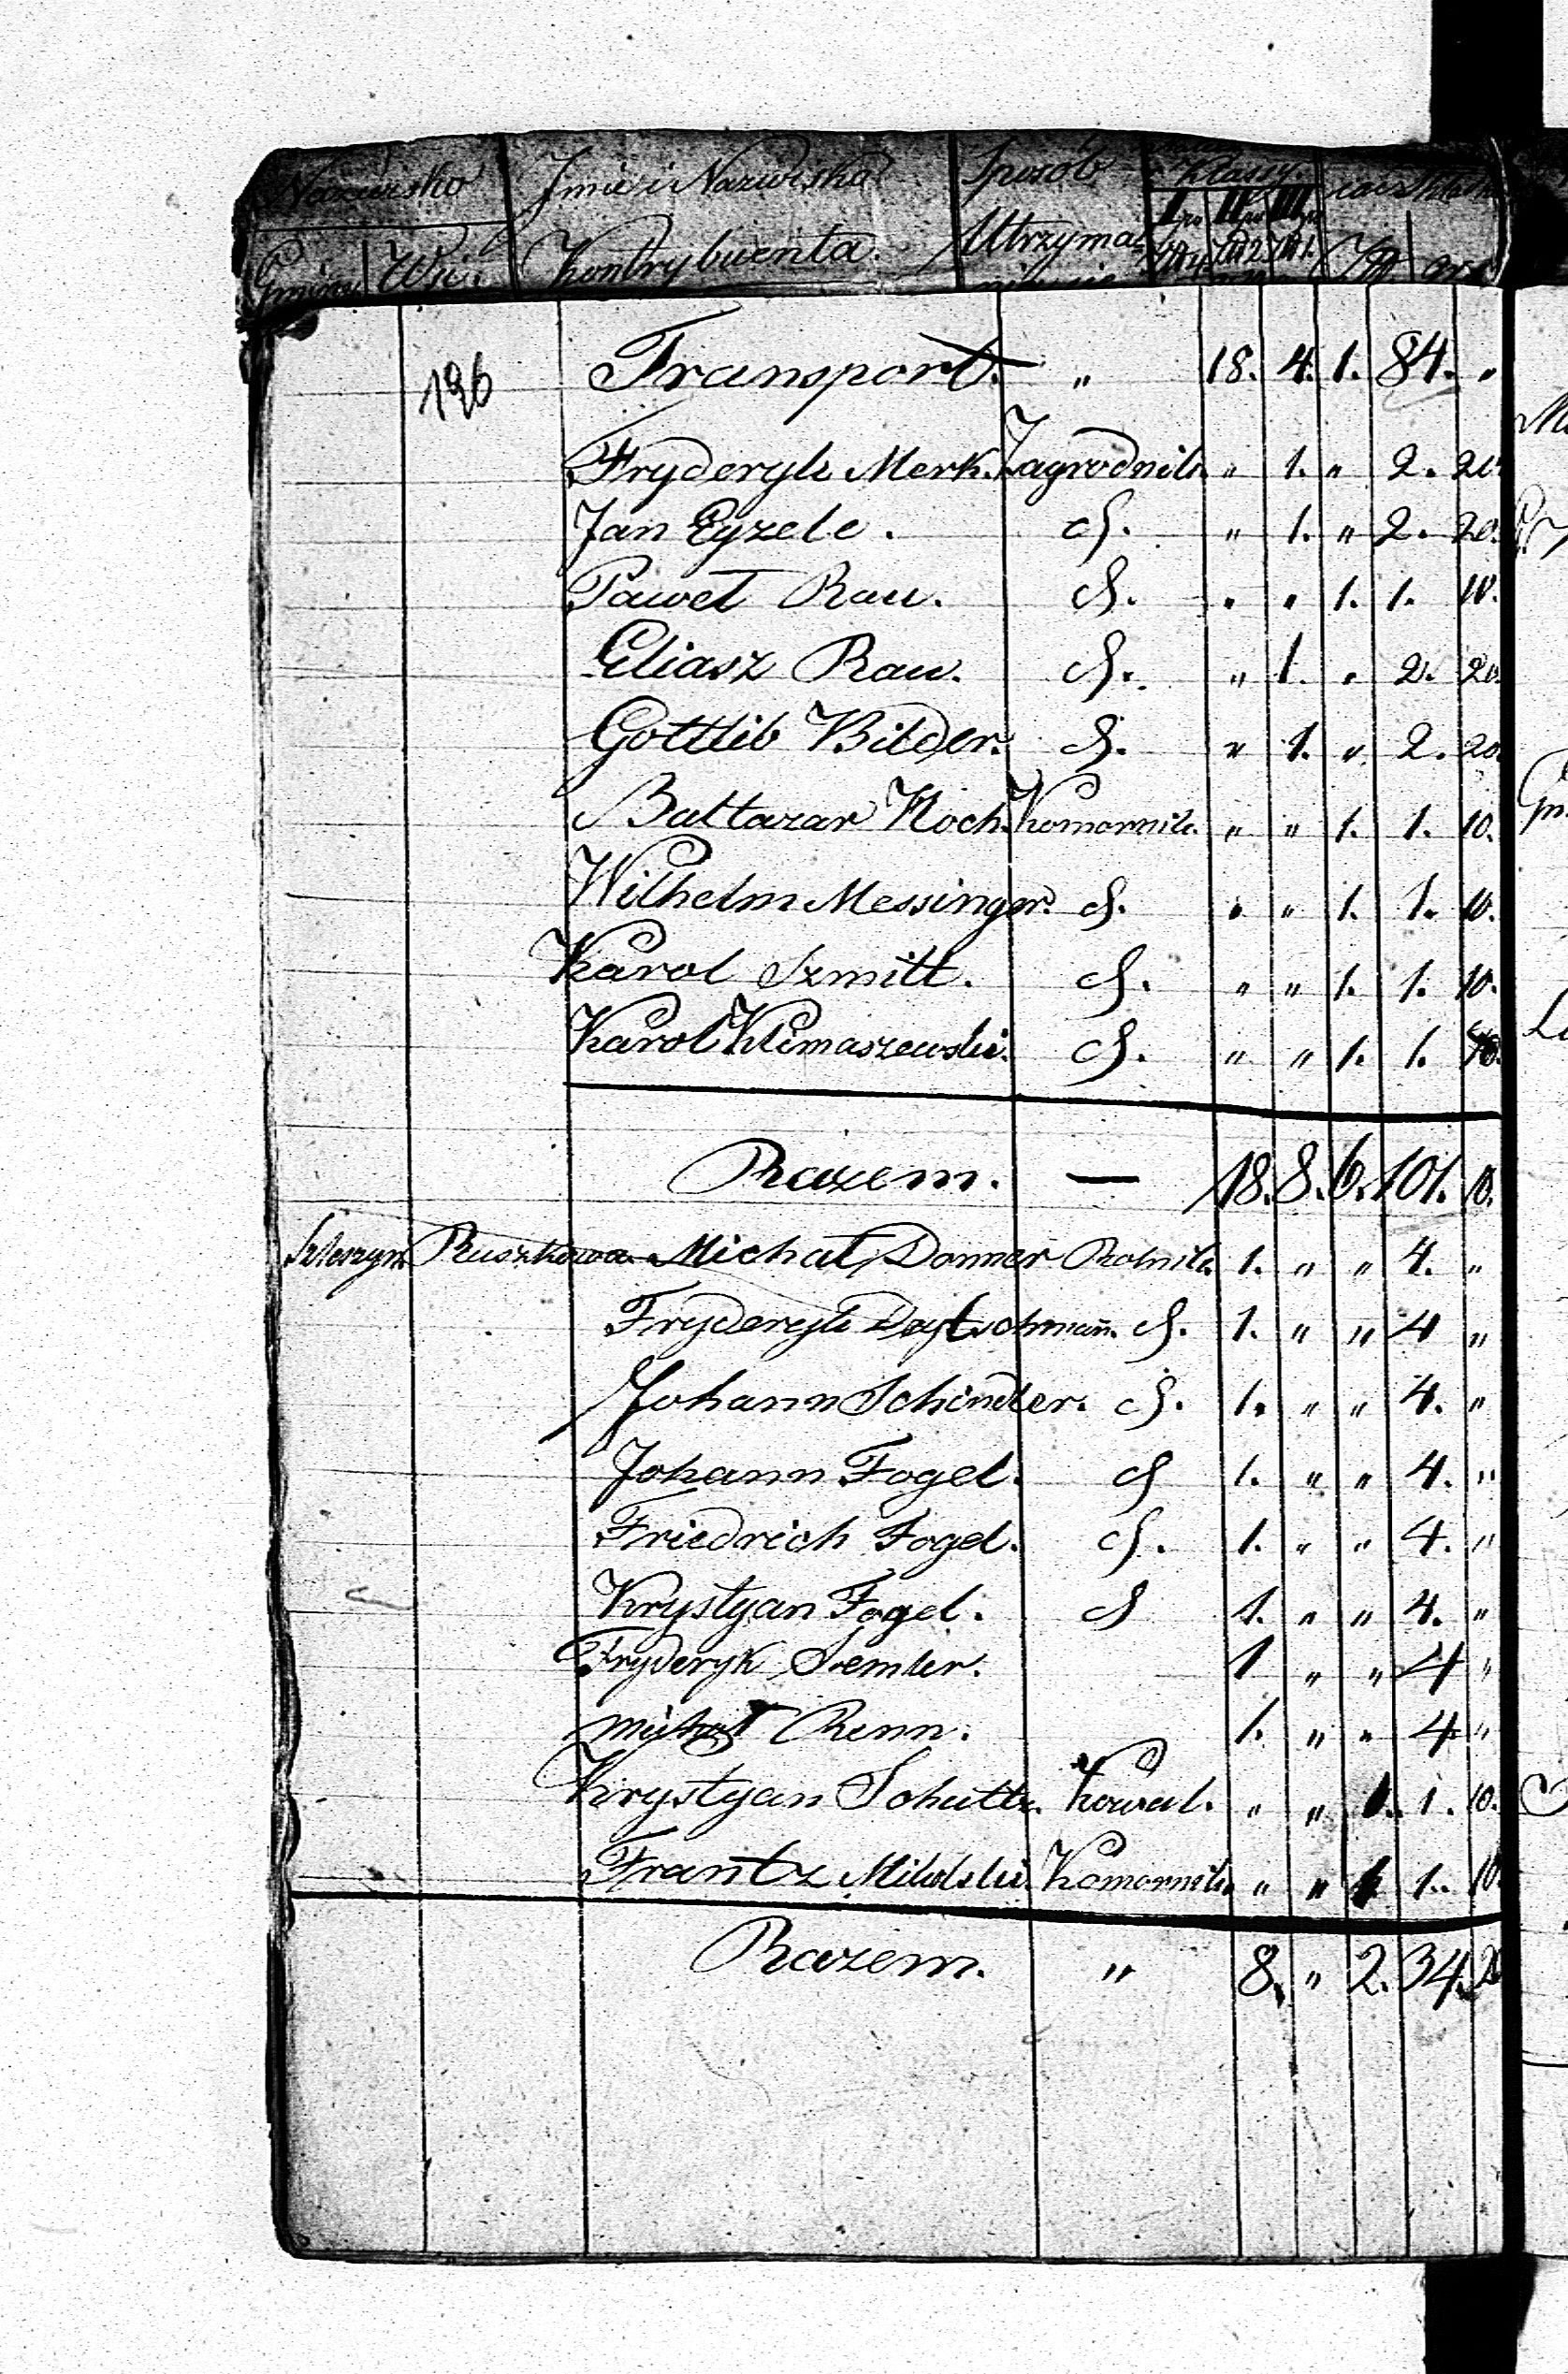 Nazwisko Jmie i Nazwiska Sposób Klassy.
Gminy Wsi. Kontrybuenta. Utrzyma- I II III
196 Transport. " 18. 4. 1. 84. "
Fryderyk Merk. Zagrodnik. " 1. " 2. 20.
Jan Eyzele. d. " 1. " 2. 20.
Paweł Rau. d. " " 1. 1. 10.
Eliasz Rau. d. " 1. " 2. 20.
Gottlib Bilder. d. " 1. " 2. 20.
Baltazar Koch. Komornik. " " 1. 1. 10.
Wilhelm Messinger. d. " " 1. 1. 10.
Karol Szmitt. d. " " 1. 1. 10.
Karol Klimaszewski. d. " " 1. 1. 10.
Razem. — 18. 8. 6. 101. 10.
Ruszkowo Michał Donner Rolnik. 1. " " 4. "
Fryderyk Deytschmañ. d. 1. " " 4 "
Johann Schindler. d. 1. " " 4. "
Johann Fogel. d 1. " " 4. "
Friedrich Fogel. d. 1. " " 4. "
Krystyan Fogel. d 1. " " 4. "
Fryderyk Semler. 1 " " 4 "
Michał Renn. 1. " " 4 "
Krystyan Schultz. Kowal. " " 1. 1. 10.
Frantz Mikolski. Komornik. " " 1 1. 10.
Razem. " 8. " 2. 34. 20